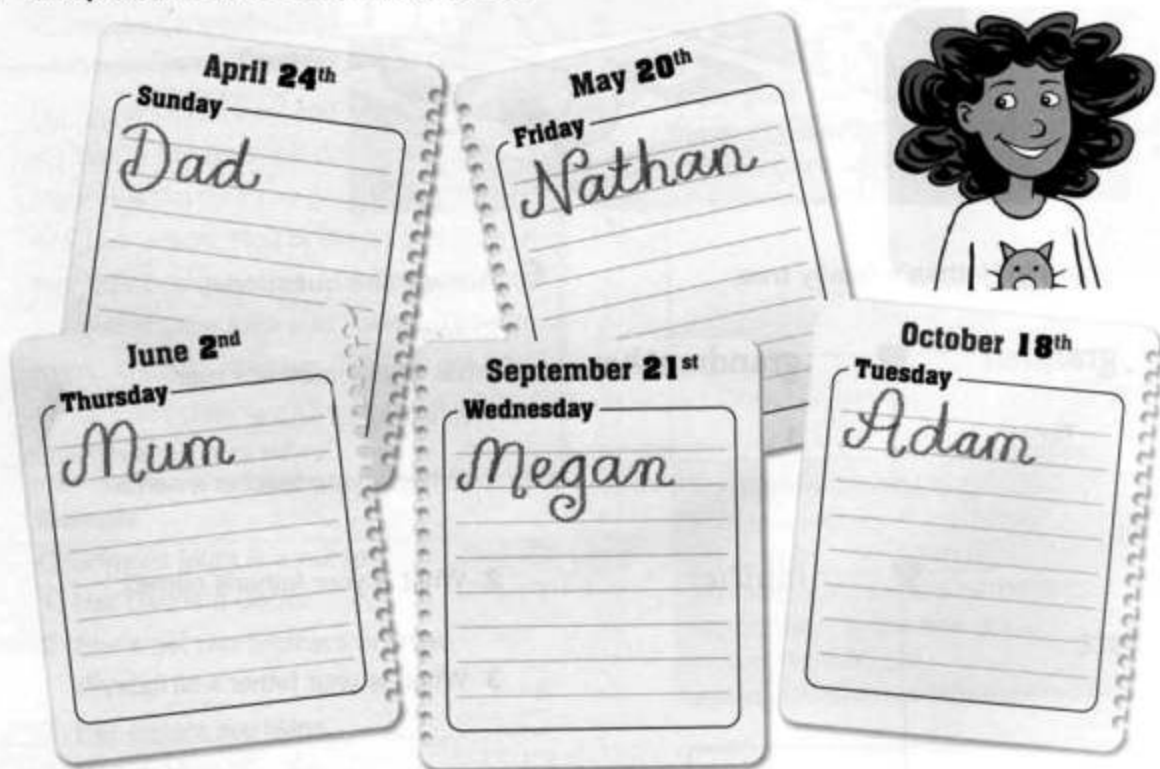 April 24th
Sunday
Dad
May 20th
Friday
Nathan
June 2nd
Thursday
Mum
September 21st
Wednesday
Megan
October 18th
Tuesday
Adam